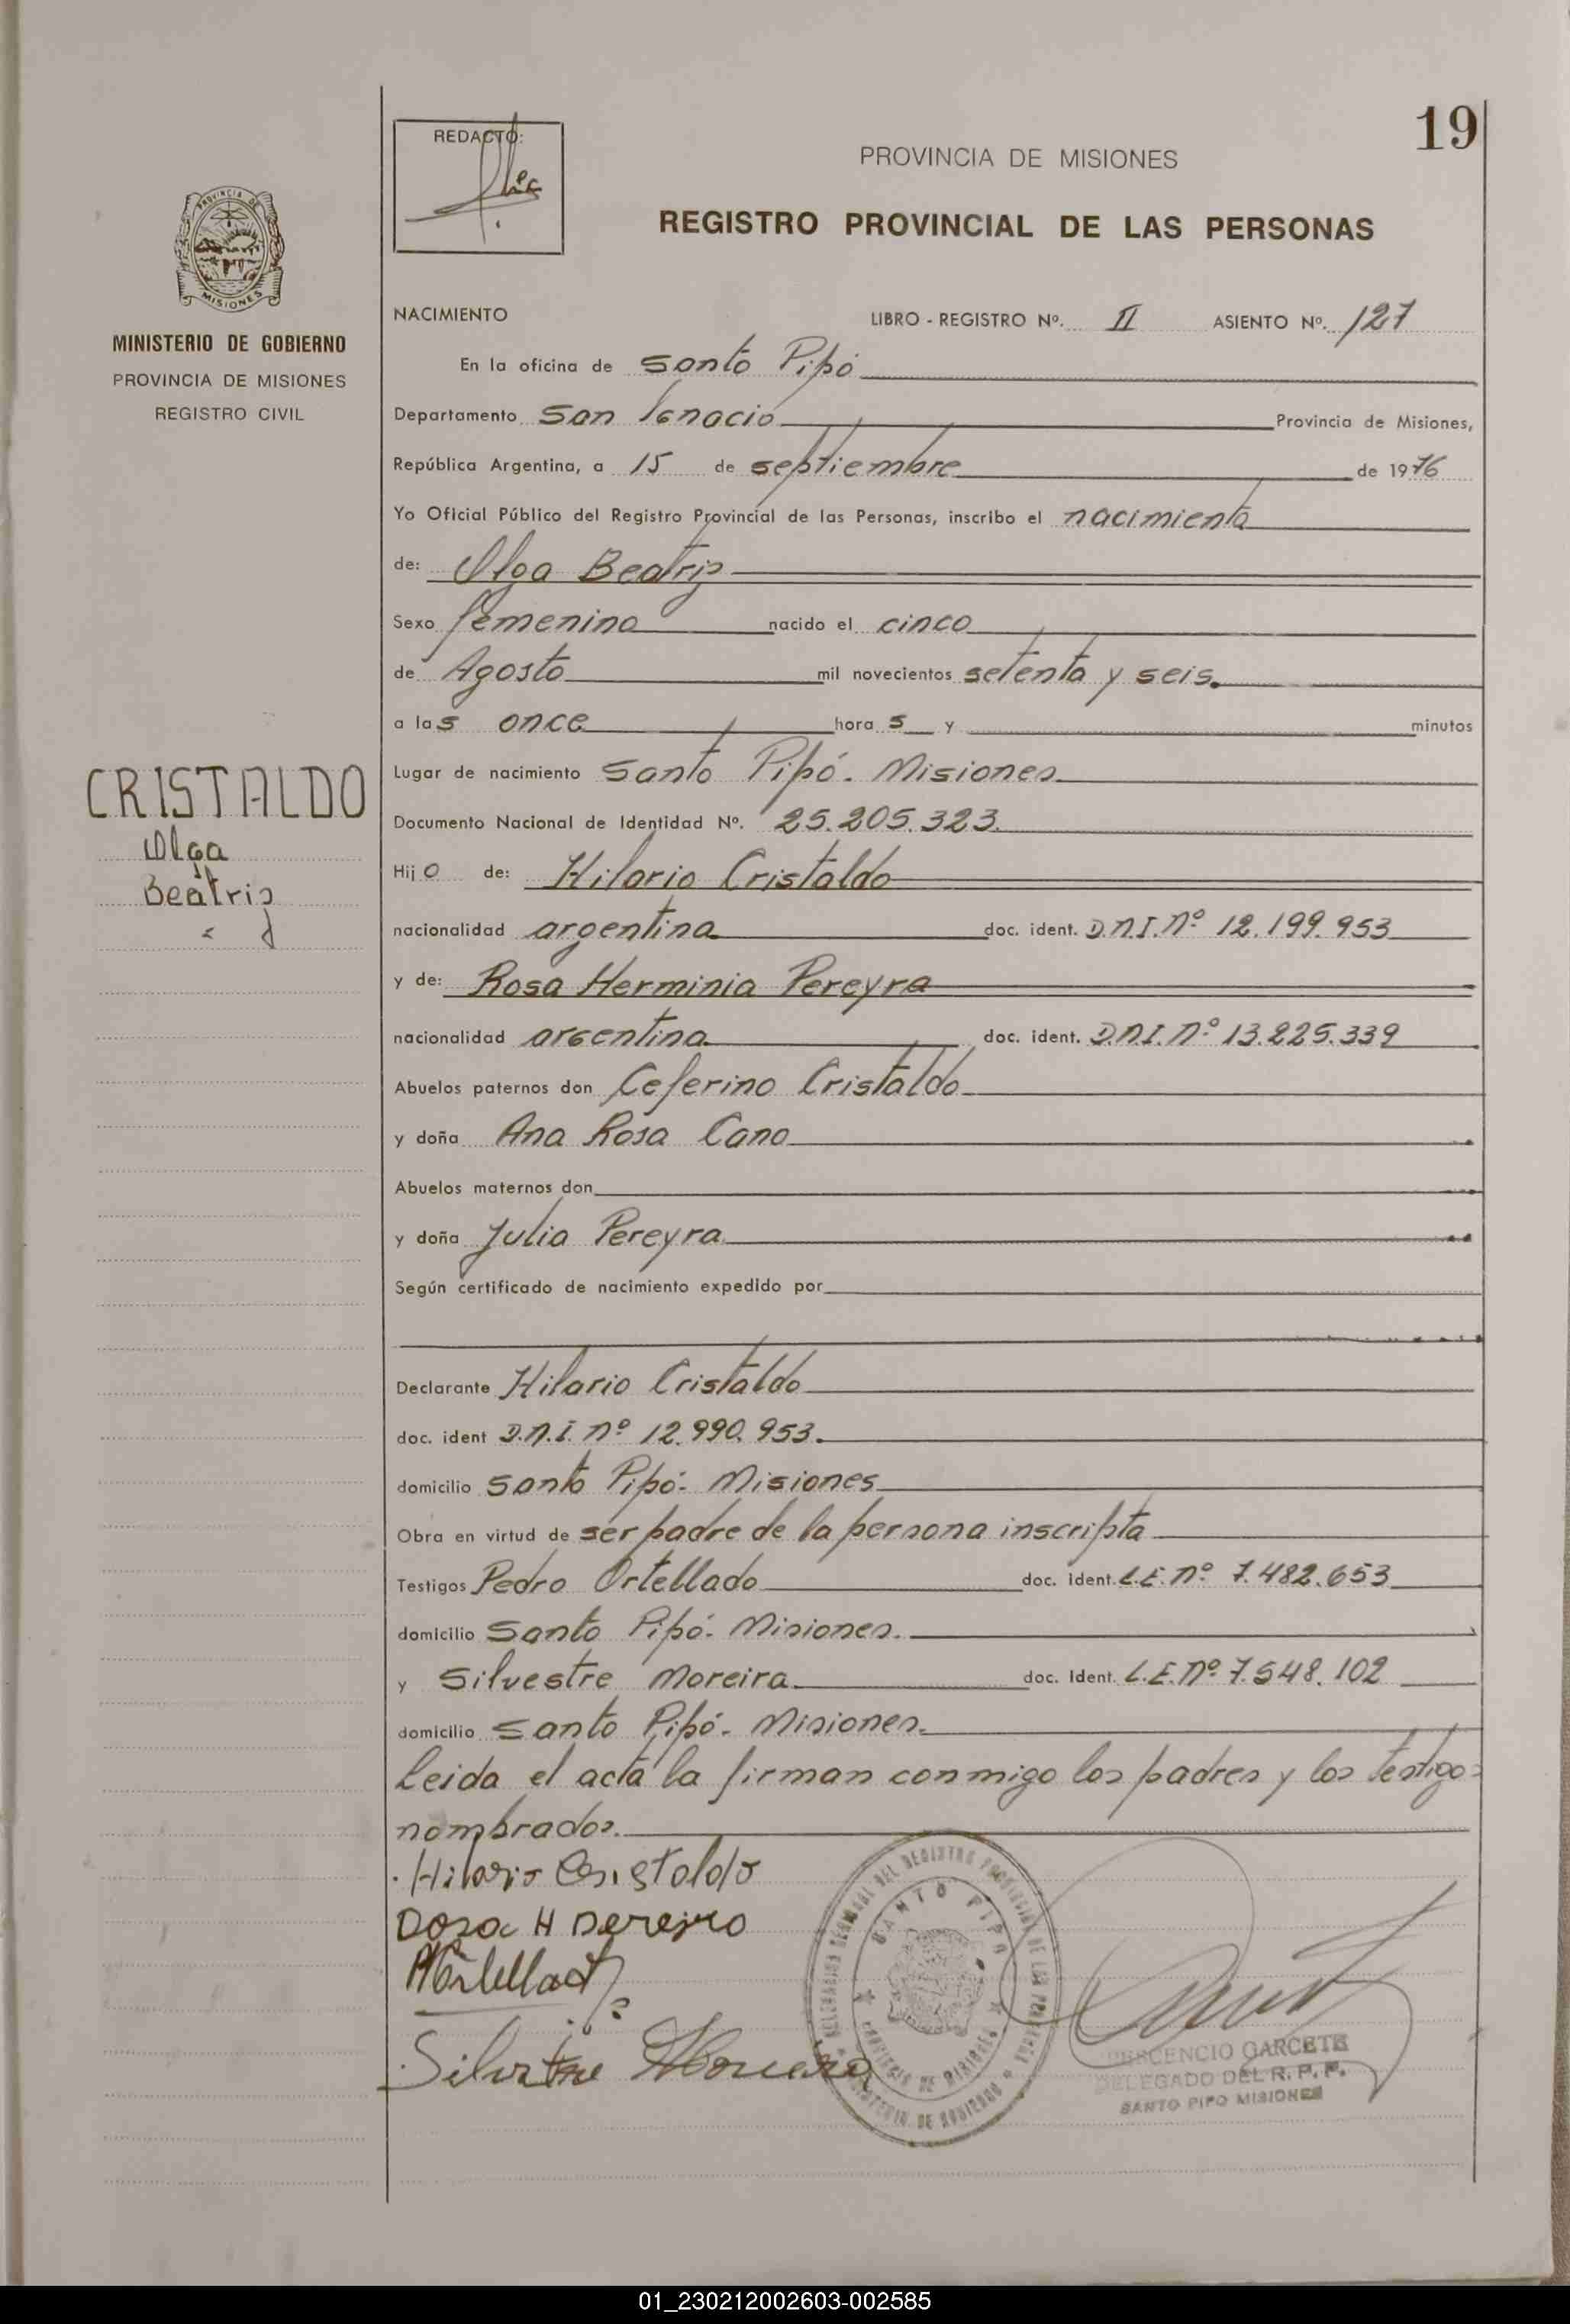 19
REDACTO:
PROVINCIA DE MISIONES
REGISTRO PROVINCIAL DE LAS PERSONAS
PROVINCIA DE
MISIONES
MINISTERIO DE GOBIERNO
PROVINCIA DE MISIONES
REGISTRO CIVIL
NACIMIENTO LIBRO - REGISTRO Nº. II ASIENTO Nº. 127
En la oficina de Santo Pipó
Departamento San Ignacio Provincia de Misiones,
República Argentina, a 15 de septiembre de 1976
Yo Oficial Público del Registro Provincial de las Personas, inscribo el nacimiento
de: Olga Beatriz
Sexo femenino nacido el cinco
de Agosto mil novecientos setenta y seis.
a las once horas y minutos
CRISTALDO
Olga
Beatriz
Lugar de nacimiento Santo Pipó - Misiones
Documento Nacional de Identidad Nº. 25.205.323.
Hijo de: Hilario Cristaldo
nacionalidad argentina doc. ident. D.N.I. Nº 12.199.953
y de: Rosa Herminia Pereyra
nacionalidad argentina doc. ident. D.N.I. Nº 13.225.339
Abuelos paternos don Ceferino Cristaldo
y doña Ana Rosa Cano
Abuelos maternos don
y doña Julia Pereyra
Según certificado de nacimiento expedido por
Declarante Hilario Cristaldo
doc. ident D.N.I. Nº 12.990.953.
domicilio Santo Pipó - Misiones
Obra en virtud de ser padre de la persona inscripta
Testigos Pedro Ortellado doc. ident. L.E. Nº 7.482.653
domicilio Santo Pipó - Misiones.
y Silvestre Moreira doc. Ident. L.E. Nº 7.548.102
domicilio Santo Pipó - Misiones.
Leida el acta la firman conmigo los padres y los testigos
nombrados.
Hilario Cristaldo
Rosa H Pereyra
Silvestre Moreira
SANTO PIPO
PROVINCIA DE MISIONES
MINISTERIO DE GOBIERNO
GARCETE
DELEGADO DEL R. P. P.
SANTO PIPO MISIONES
01_230212002603-002585